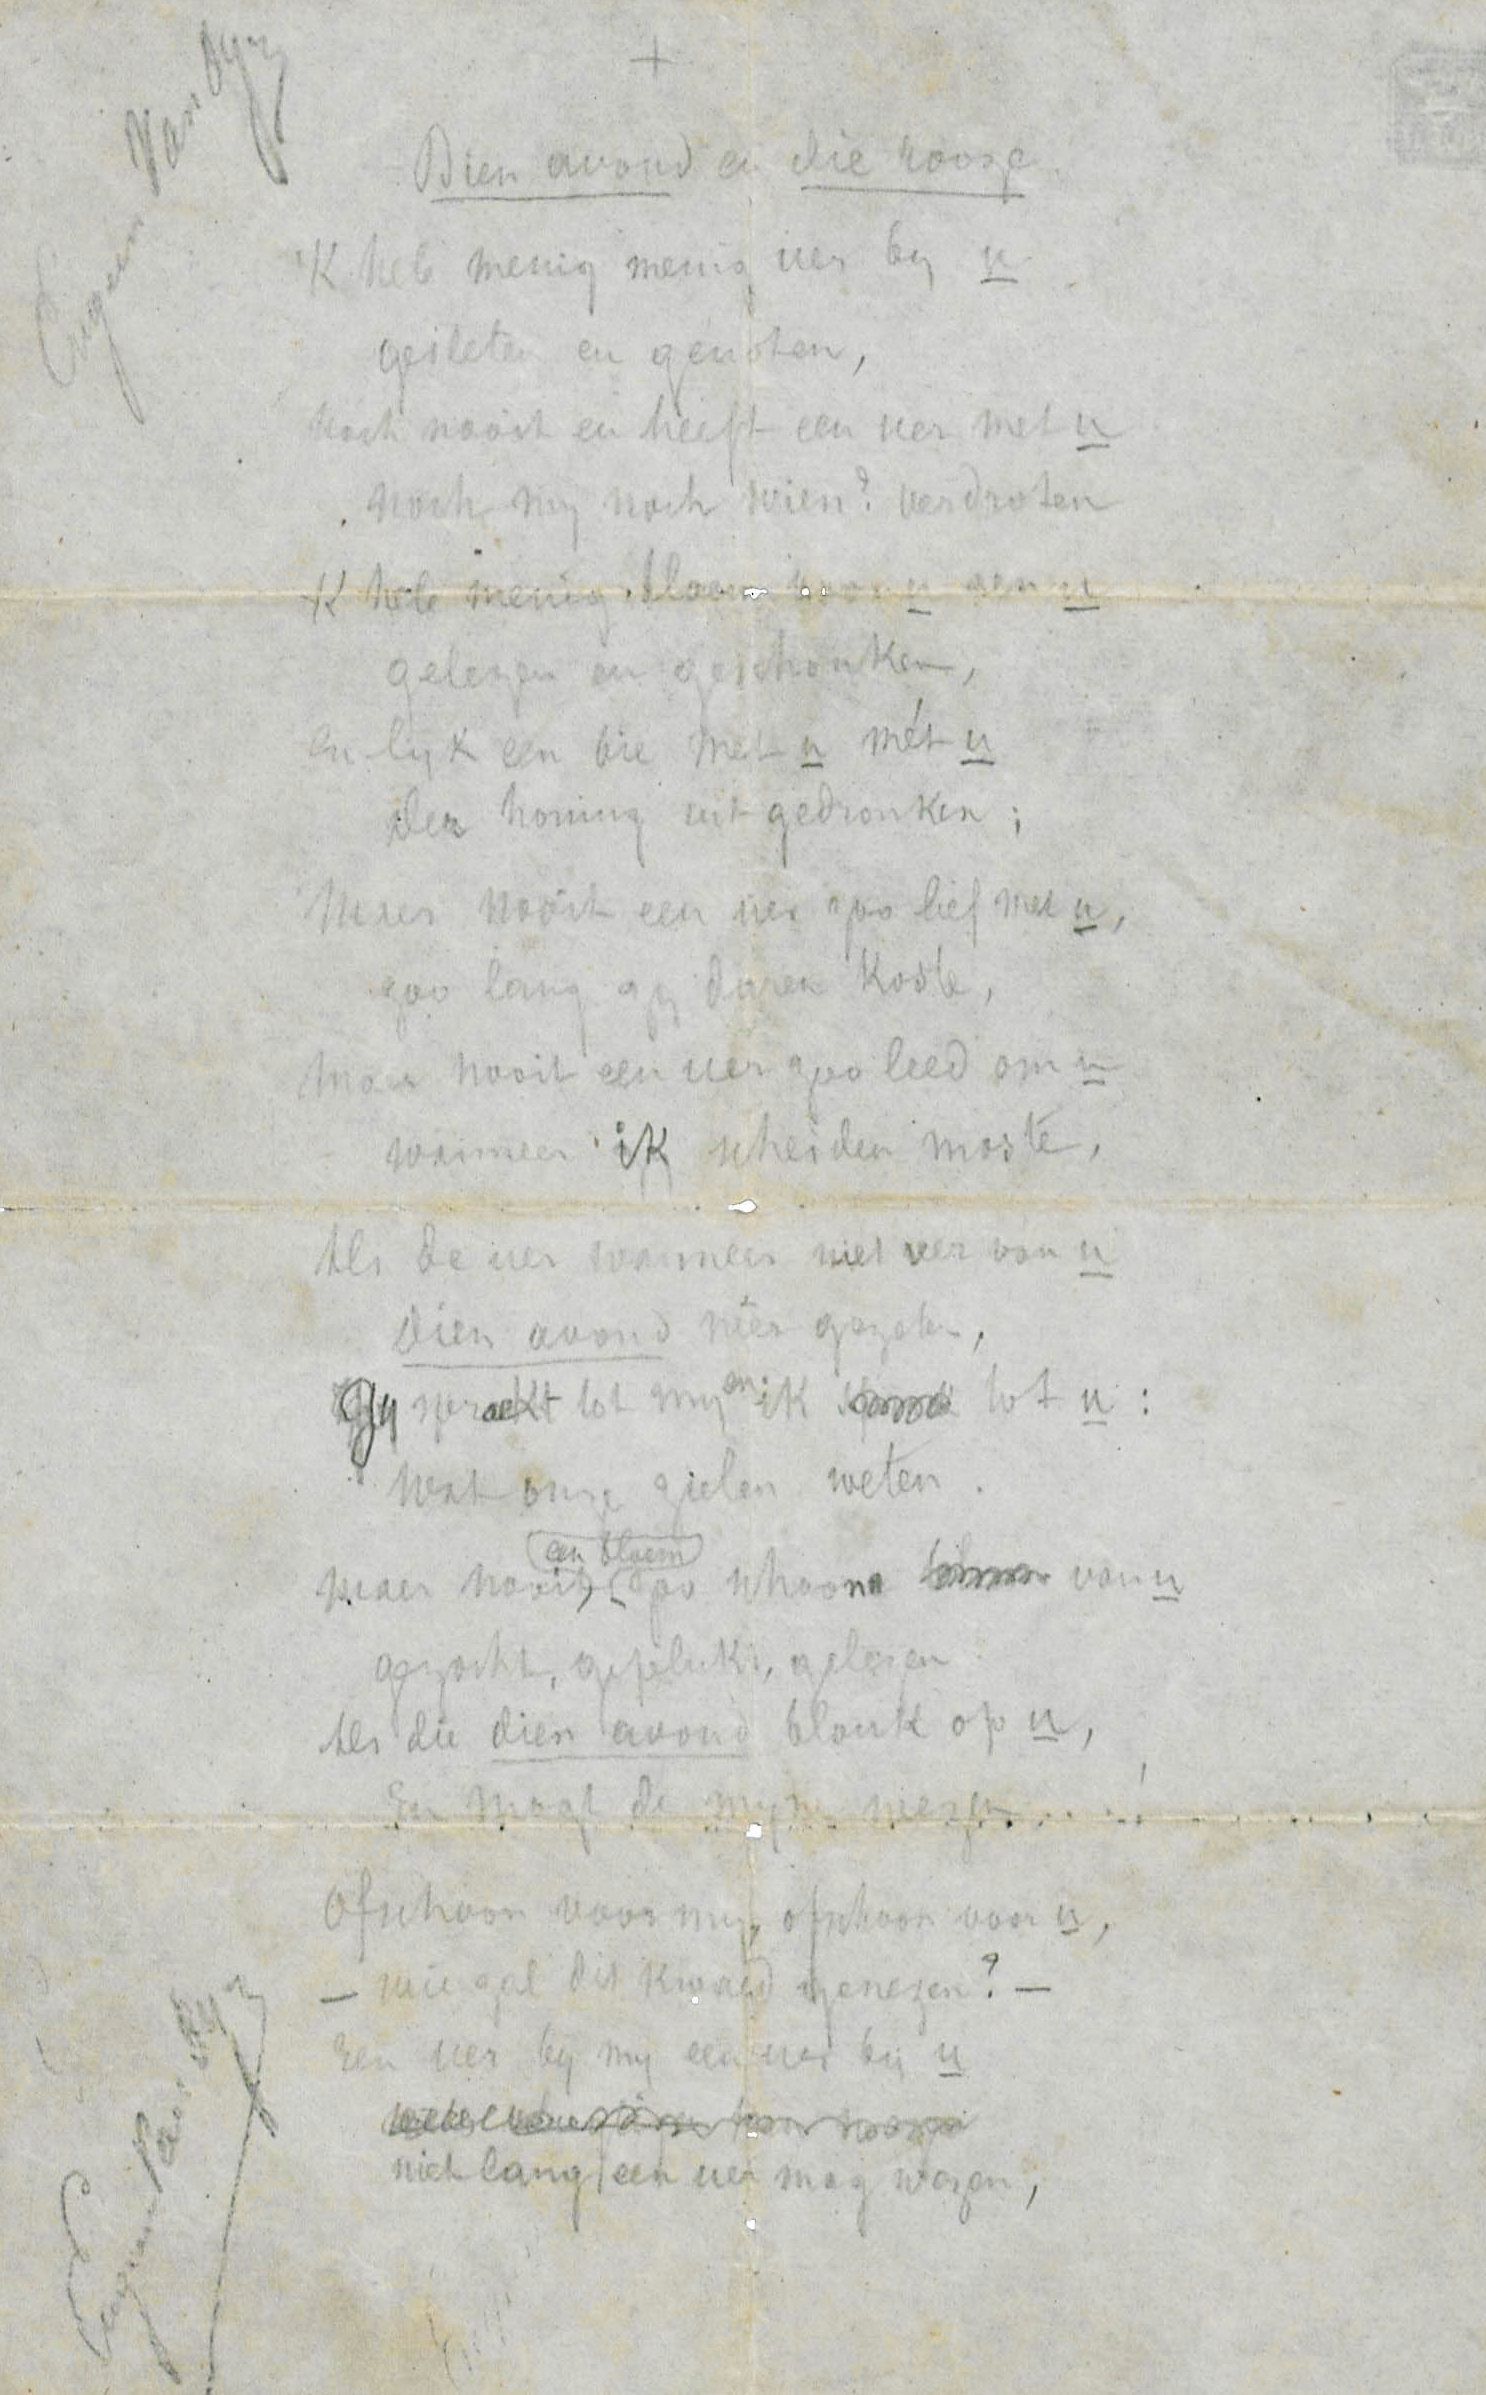 Eugeen Van Oye
+
Dien avond en die rooze.
'K heb menig menig uer by u
gesleten en genoten,
Noch nooit en heeft een uer met u
noch my noch wien? verdroten
'K heb menig bloem voor u aen u
gelezen en geschonken,
en lyk een bie met u mét u
der honing uit gedronken;
Maer nooit een uer zoo lief met u,
zoo lang zy duren koste,
Maer nooit een uer zoo leed om u
wanneer ik scheiden moste,
Als de uer wanneer niet ver van u
dien avond néer gezeten,
Gy spraekt tot my en ik tot u:
Wat onze zielen weten.
een bloem
maer nooit, zoo schoone van u
gezocht, geplukt, gelezen
Als die dien avond blonk op u,
En mogt de myne wezen....!
Ofschoon voor my, ofschoon voor u,
- wie zal dit kwaed genezen? -
Een uer by my een uer by u
niet lang een uer mag wezen,
Eugeen Van Oye